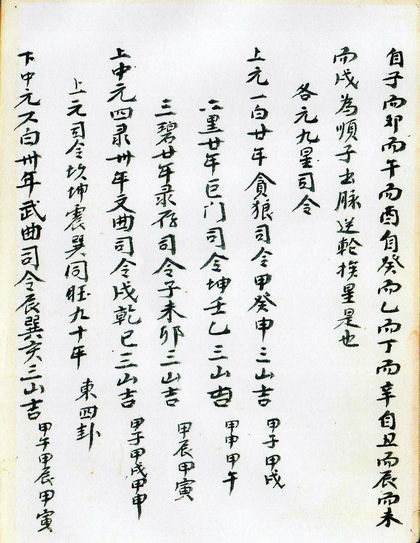 自子而卯而午而酉自癸而乙而丁而辛自丑而辰而未
而戌為順子出脉逆輪挨星是也
各元九星司令
上元一白廿年貪狼司令甲癸申三山吉甲子甲戌
二黑廿年巨门司令坤壬乙三山吉甲申甲午
三碧廿年录存司令子未卯三山吉甲辰甲寅
上中元四录卅年文曲司令戌乾巳三山吉甲子甲戌甲申
上元司令坎坤震巽同旺九十年 東四卦
下中元六白卅年武曲司令辰巽亥三山吉甲午甲辰甲寅